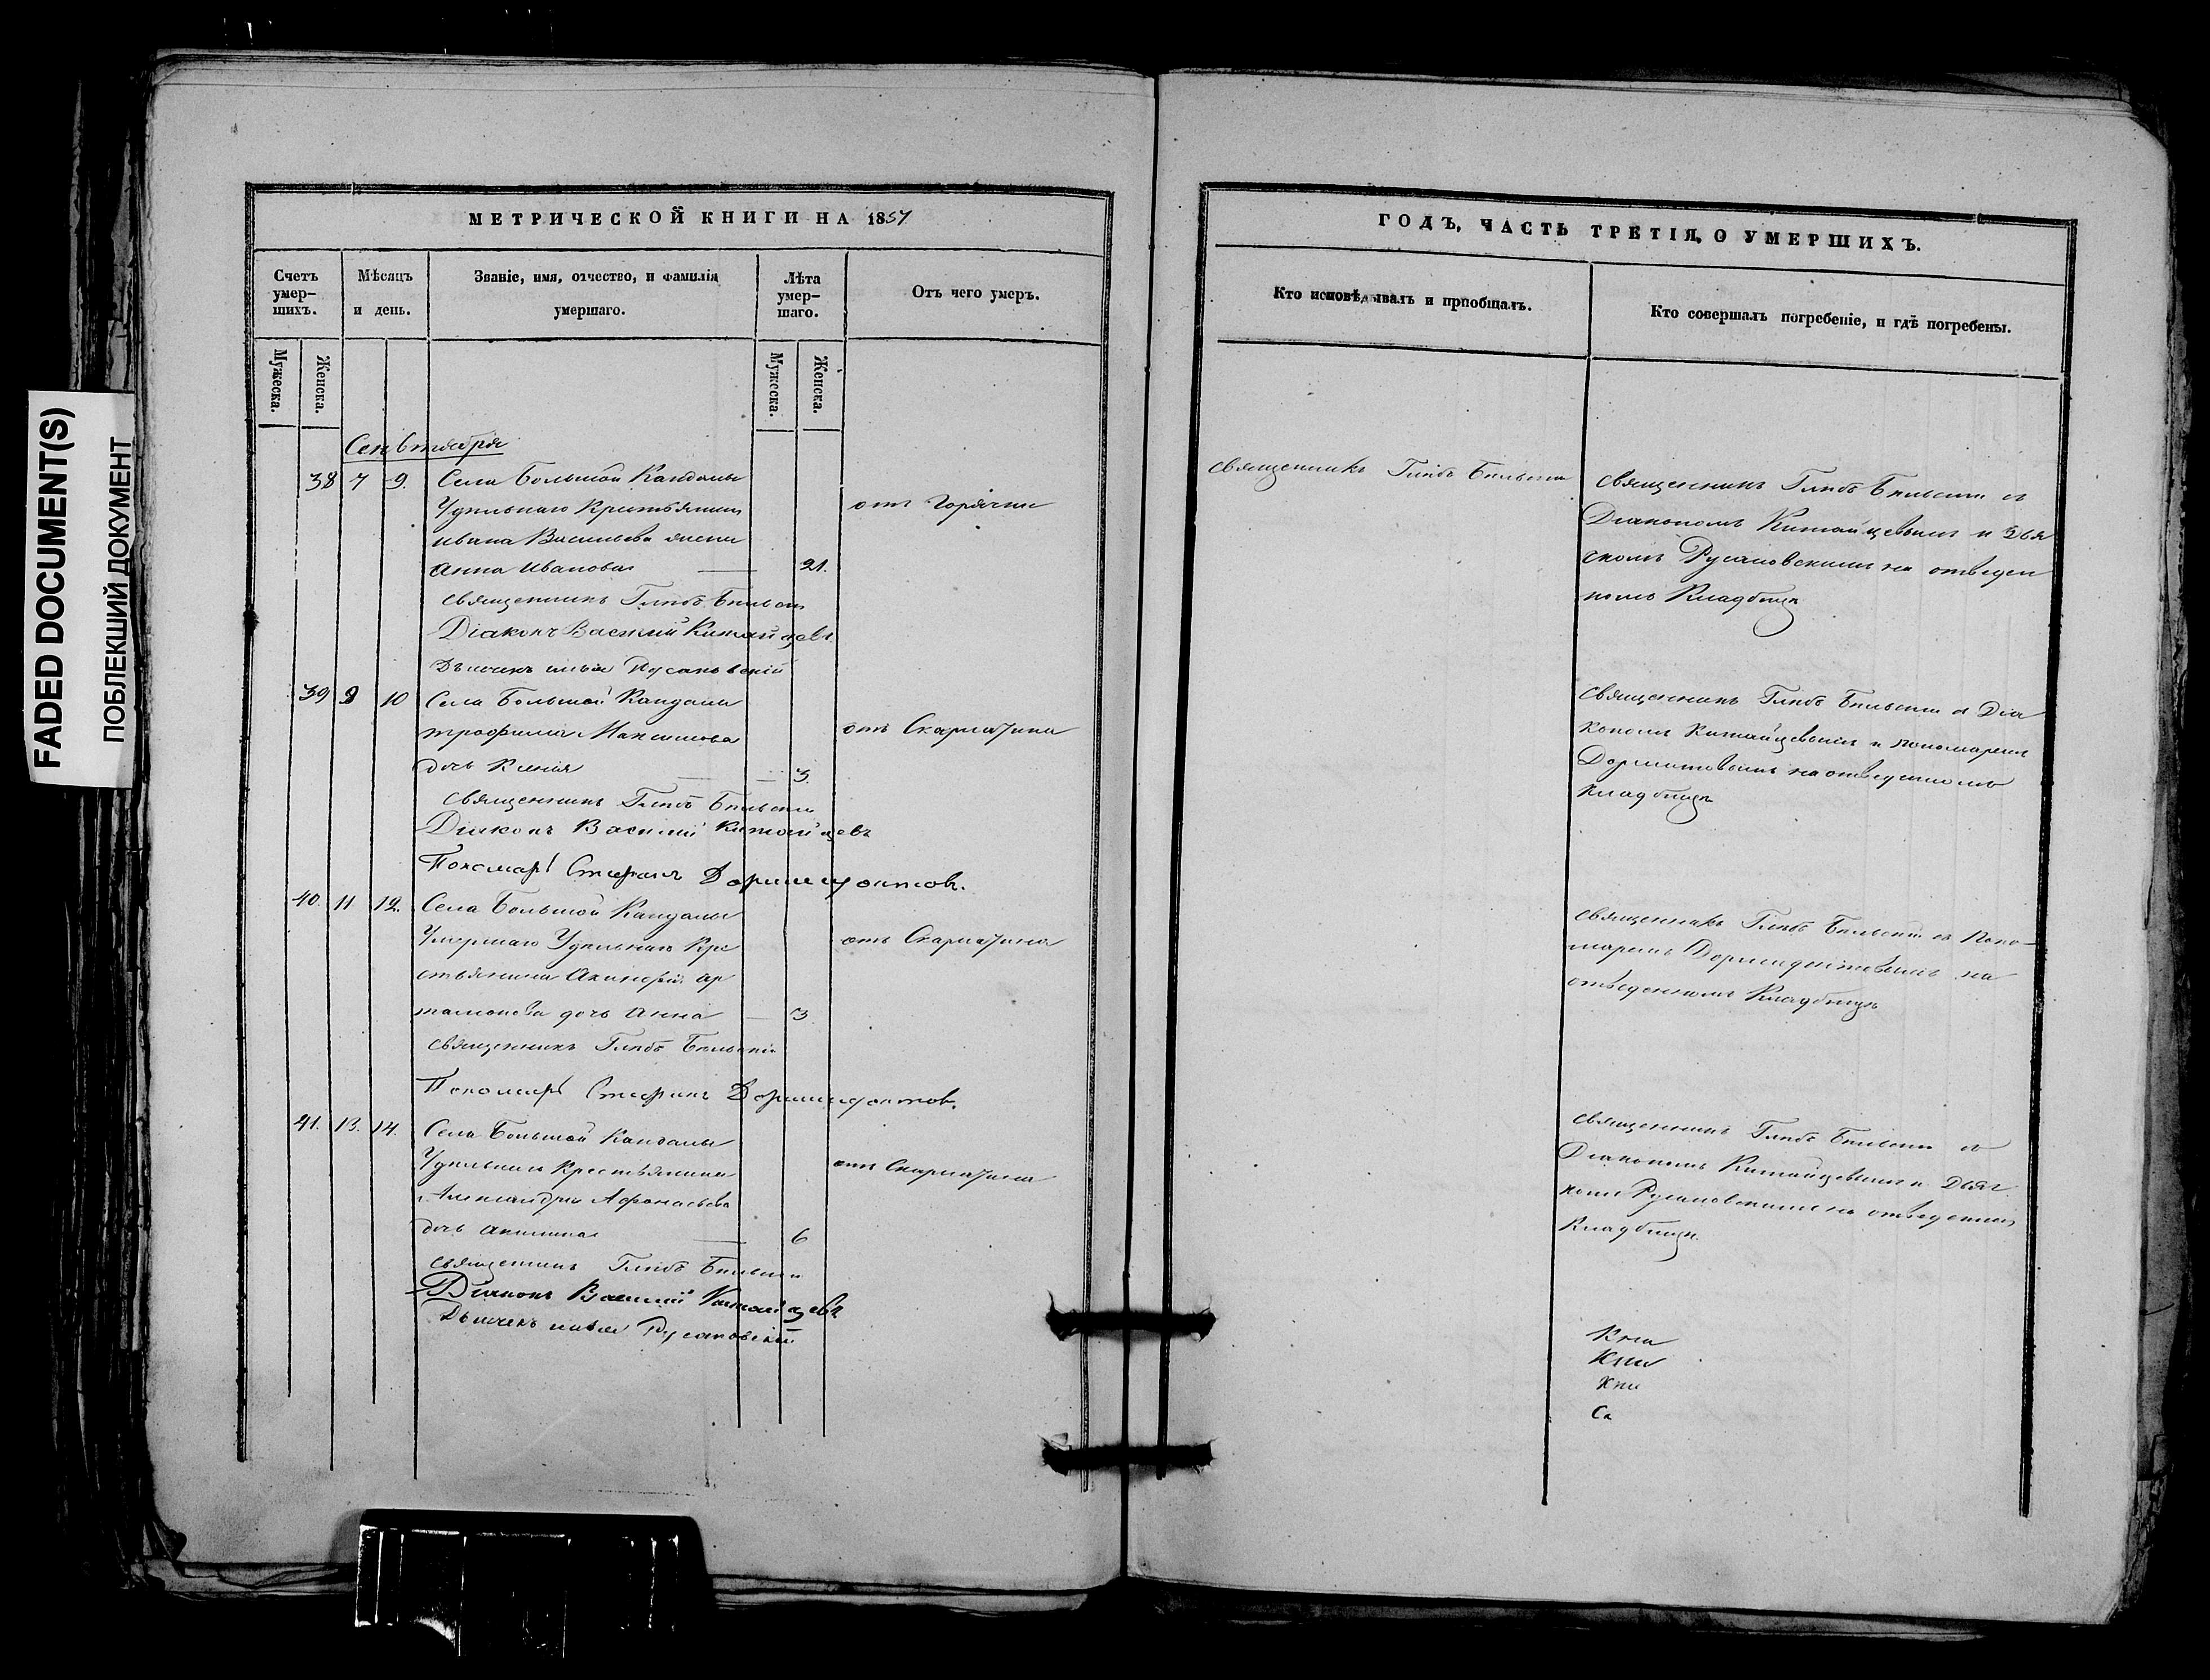 FADED DOCUMENT(S)
ПОБЛЕКШИЙ ДОКУМЕНТ
МЕТРИЧЕСКОЙ КНИГИ НА 1857
Счетъ умер-шихъ.
Мѣсяцъ и день.
Званіе, имя, отчество, и фамилія умершаго.
Лѣта умер-шаго.
Отъ чего умеръ.
Мужеска.
Женска.
Мужеска.
Женска.
Сентября
38 7 9. Села Большой Кандалы
Удѣльнаго Крестьянина
отъ горячки
Ивана Васильева жена
Анна Иванова 21.
Священникъ Глѣбъ Бѣльскій
Діаконъ Василій Китайцевъ
Дьячекъ Русановскій
39 9 10 Села Большой Кандалы
Трофима Максимова
отъ Скарлатина
дочь Ксенія 3.
Священникъ Глѣбъ Бѣльскій
Діаконъ Василій Китайцевъ
Пономарь Стефанъ Доримедонтовъ.
40. 11 12. Села Большой Кандалы
Умершаго Удѣльнаго Кре
отъ Скарлатина
стьянина Ар
тамонова дочь Анна 3
Священникъ Глѣбъ Бѣльскій
Пономарь Стефанъ Доримедонтовъ.
41. 13. 14. Села Большой Кандалы
Удѣльнаго Крестьянина
отъ Скарлатина
Александра Афонасьева
дочь Акилина 6
Священникъ Глѣбъ Бѣльскій
Діаконъ Василій Китайцевъ
Дьячекъ Русановскій
ГОДЪ, ЧАСТЬ ТРЕТІЯ, О УМЕРШИХЪ.
Кто исповѣдывалъ и пріобщалъ.
Кто совершалъ погребеніе, и гдѣ погребены.
Священникъ Глѣбъ Бѣльскій
Священникъ Глѣбъ Бѣльскій съ
Діакономъ Китайцевымъ и Дья
скомъ Русановскимъ на отведен
номъ Кладбищѣ
Священникъ Глѣбъ Бѣльскій съ Діа
кономъ Китайцевымъ и пономаремъ
на отведенномъ
кладбищѣ
Священникъ Глѣбъ Бѣльскій съ Поно-
маремъ Доримедонтовымъ на
отведенномъ Кладбищѣ
Священникъ Глѣбъ Бѣльскій съ
Діакономъ Китайцевымъ и Дьяч
комъ Русановскимъ на отведенномъ
Кладбищѣ.
Кни
Кни
Кни
Св